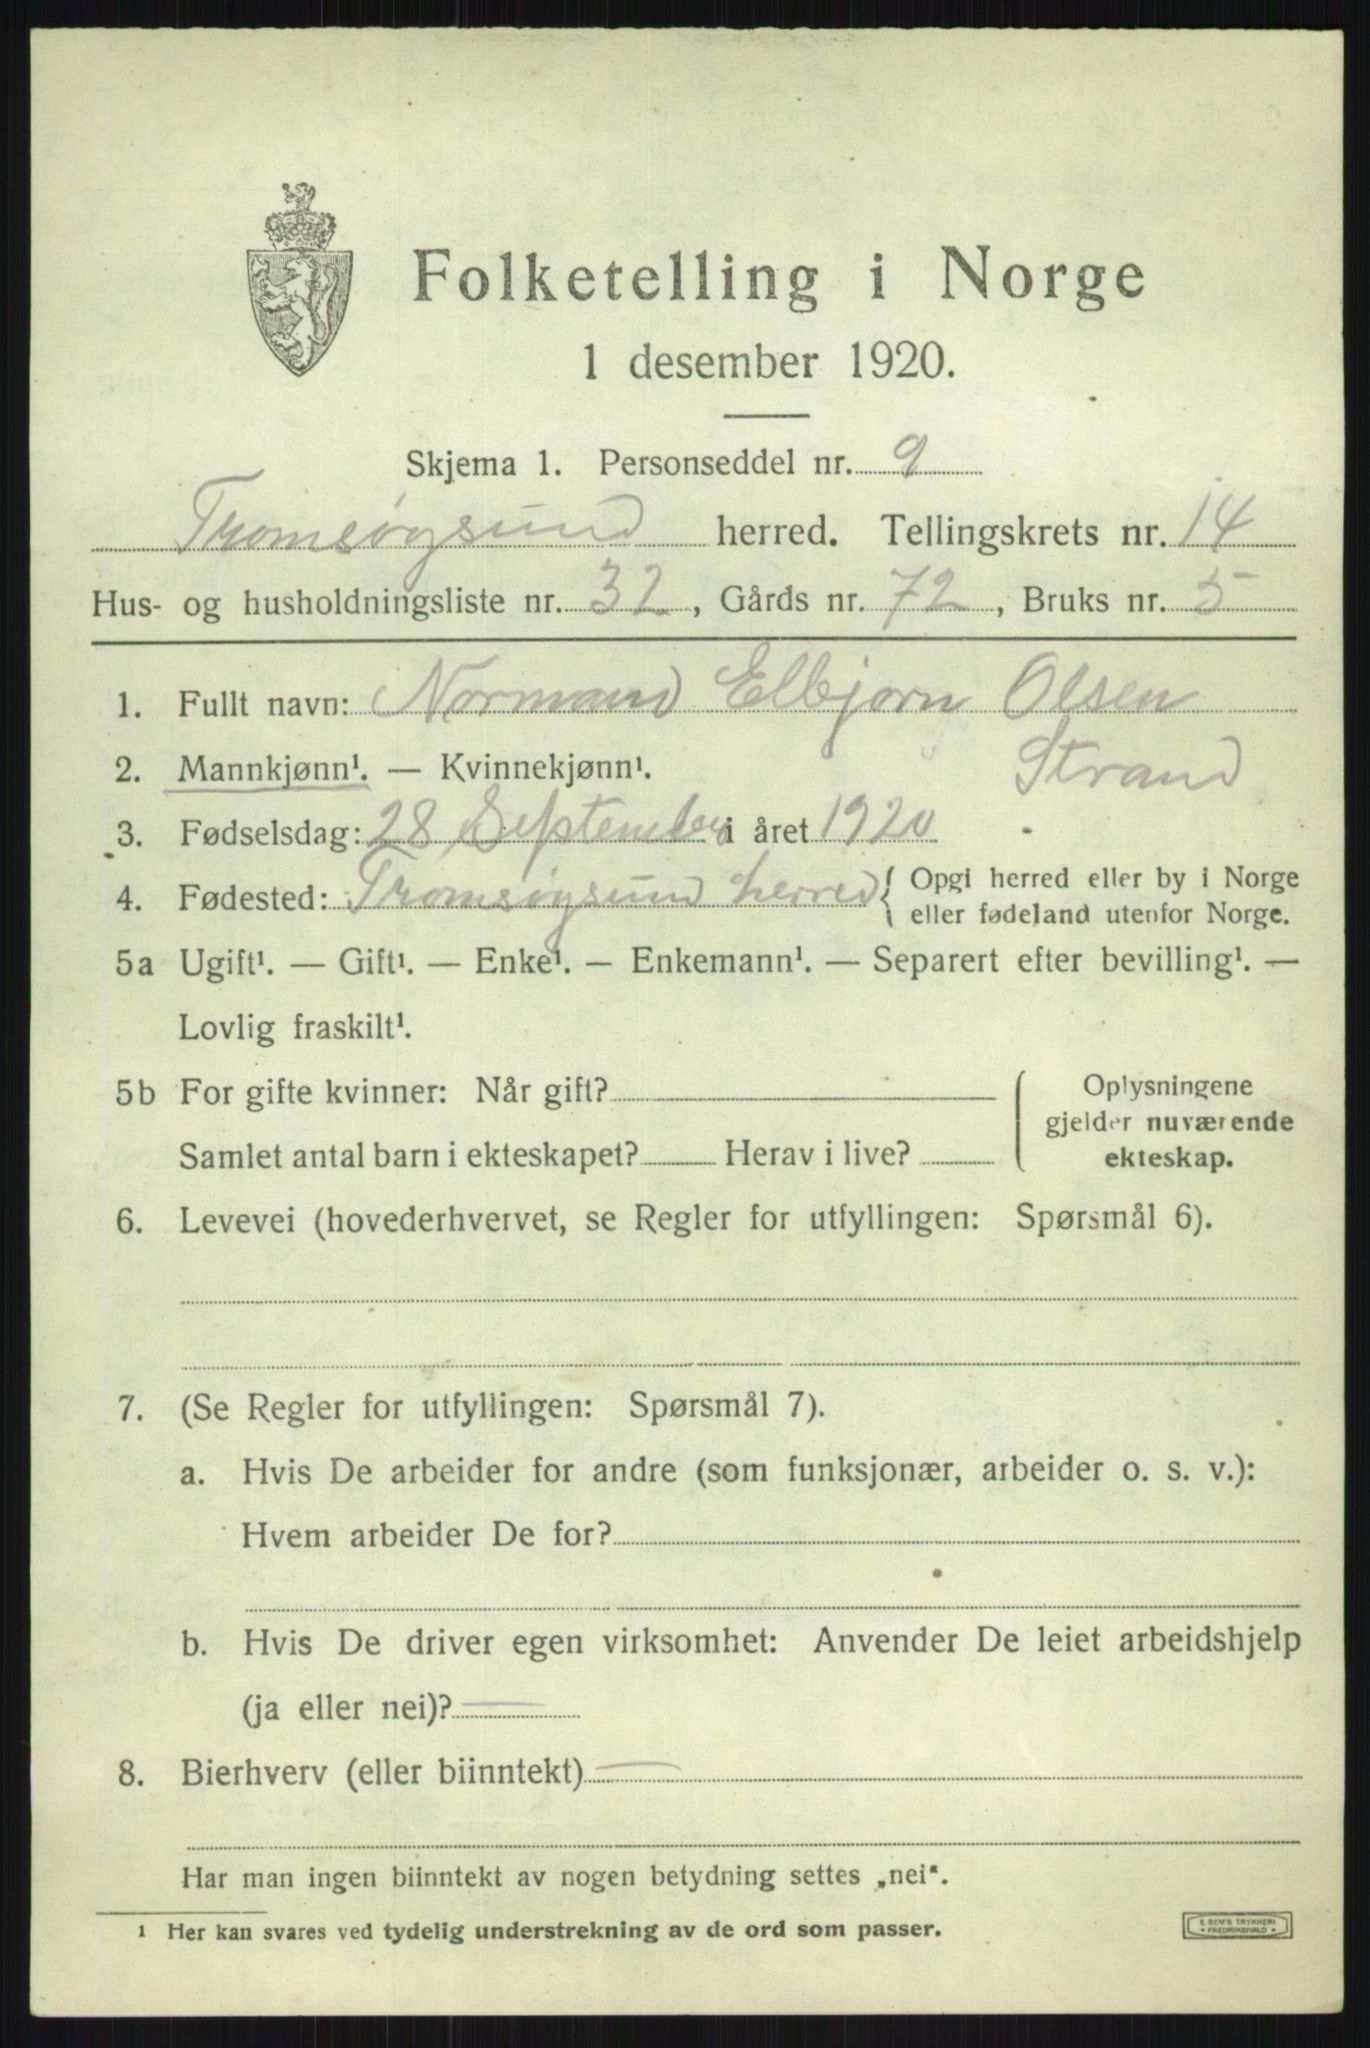 Folketelling i Norge
1 desember 1920.
Skjema 1. Personseddel nr. 9
Tromsøysund herred. Tellingskrets nr. 14
Hus- og husholdningsliste nr. 32, Gårds nr. 72, Bruks nr. 5
1. Fullt navn: Normand Elbjørn Olsen
2. Mannkjønn¹. — Kvinnekjønn¹. Strand
3. Fødselsdag: 28 September i året 1920
4. Fødested: Tromsøysund herred { Opgi herred eller by i Norge
eller fødeland utenfor Norge.
5a Ugift¹. — Gift¹. — Enke¹. — Enkemann¹. — Separert efter bevilling¹. —
Lovlig fraskilt¹.
5b For gifte kvinner: Når gift? Oplysningene
gjelder nuværende
Samlet antal barn i ekteskapet? Herav i live? ekteskap.
6. Levevei (hovederhvervet, se Regler for utfyllingen: Spørsmål 6).
7. (Se Regler for utfyllingen: Spørsmål 7).
a. Hvis De arbeider for andre (som funksjonær, arbeider o. s. v.):
Hvem arbeider De for?
b. Hvis De driver egen virksomhet: Anvender De leiet arbeidshjelp
(ja eller nei)? —
8. Bierhverv (eller biinntekt) —
Har man ingen biinntekt av nogen betydning settes „nei“.
¹ Her kan svares ved tydelig understrekning av de ord som passer.
E. SEM'S TRYKKERI
• FREDRIKSHALD •